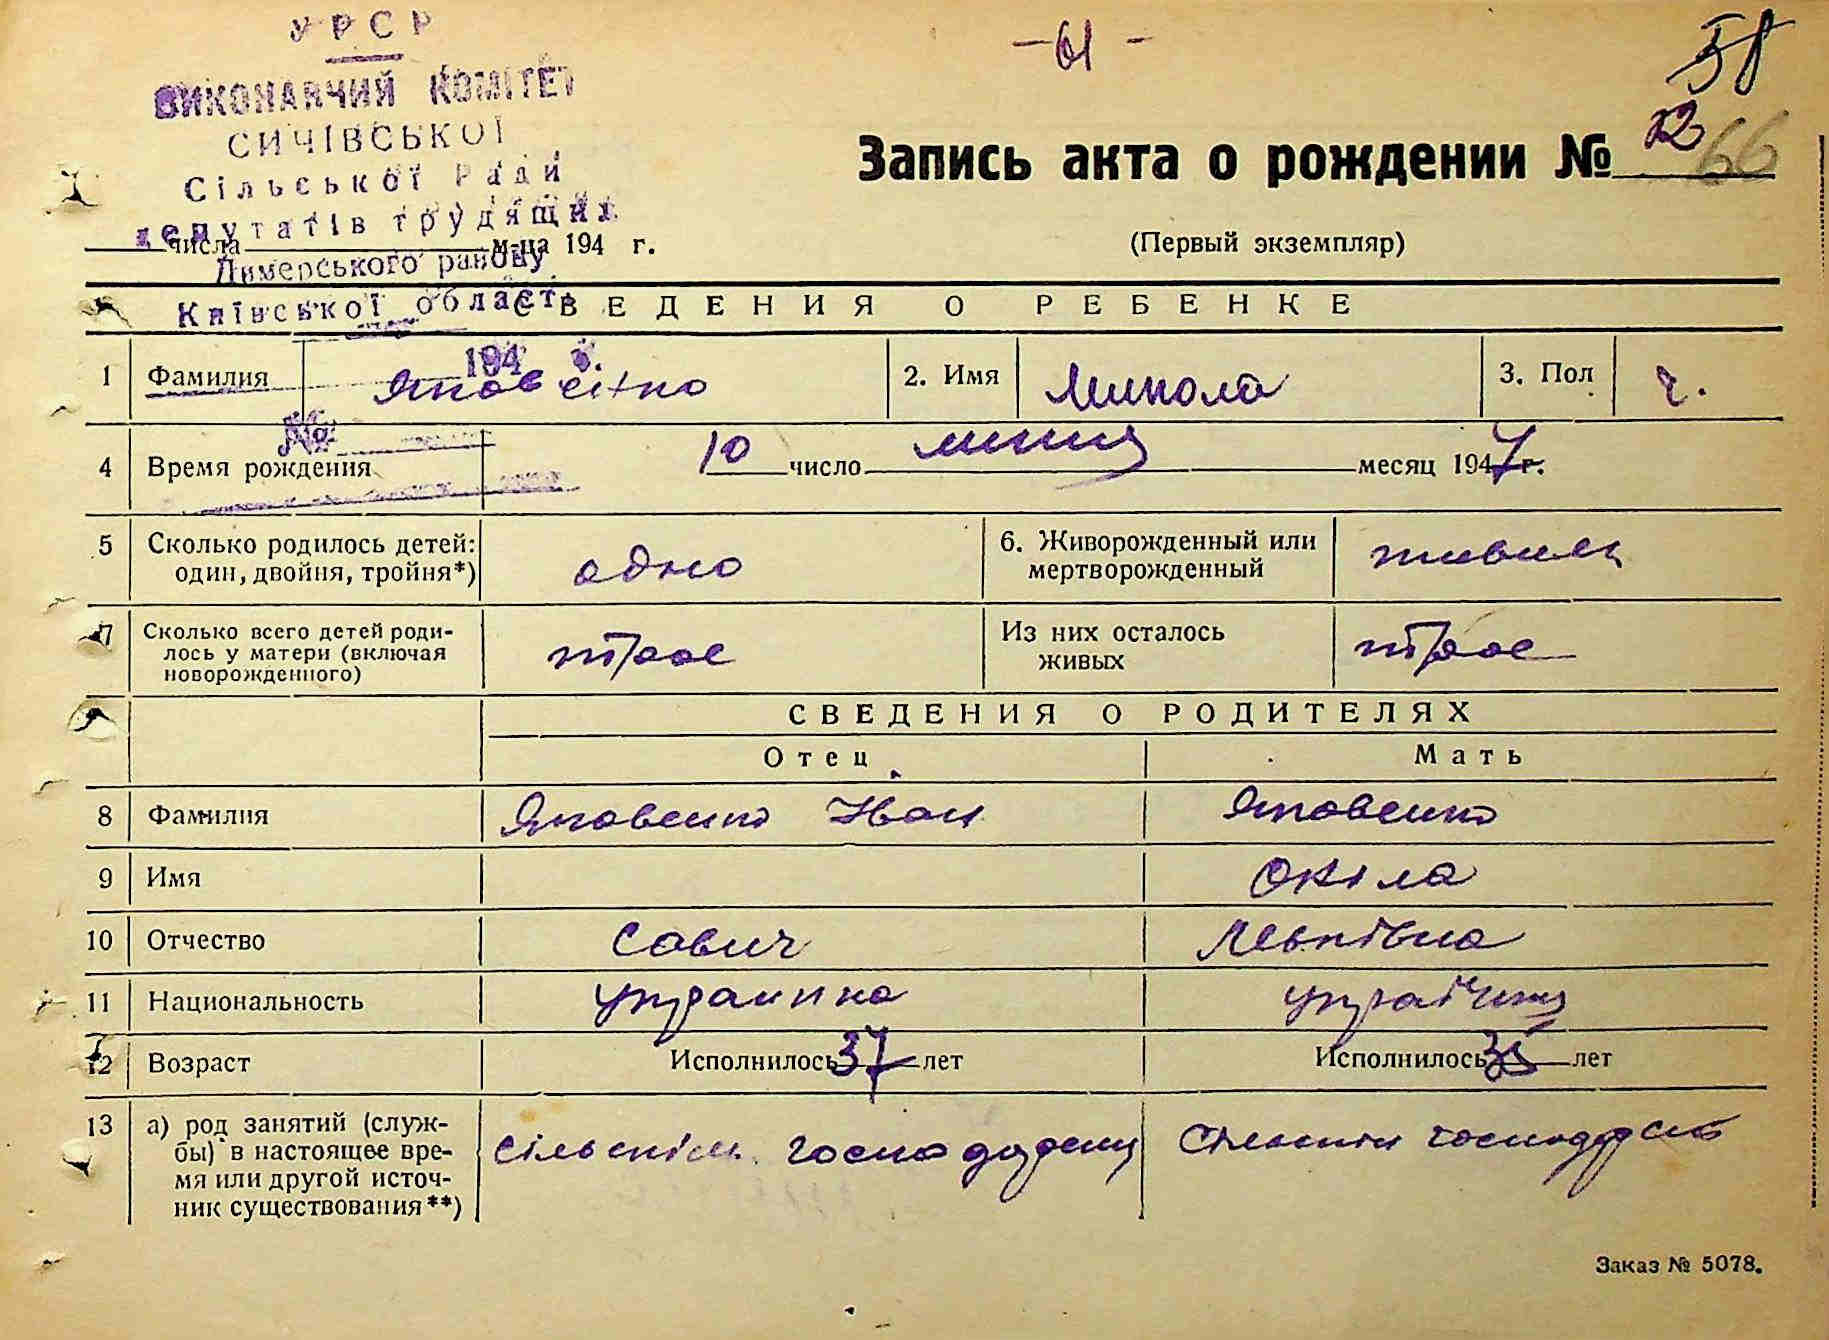 УРСР
-61-
58
ВИКОНАВЧИЙ КОМІТЕТ
СИЧІВСЬКОЇ
Сільської Ради
депутатів трудящих
Димерського району
Київської області
194 р.
№
Запись акта о рождении № 12 66
числа м-ца 194 г.
(Первый экземпляр)
СВЕДЕНИЯ О РЕБЕНКЕ
1 Фамилия Яковенко 2. Имя Микола 3. Пол ч.
4 Время рождения 10 число липня месяц 1947 г.
5 Сколько родилось детей: один, двойня, тройня*) одно 6. Живорожденный или мертворожденный живий
7 Сколько всего детей роди-
лось у матери (включая
новорожденного) троє Из них осталось живых троє
СВЕДЕНИЯ О РОДИТЕЛЯХ
Отец Мать
8 Фамилия Яковенко Іван Яковенко
9 Имя Окіла
10 Отчество Савич
11 Национальность українка
12 Возраст Исполнилось 37 лет Исполнилось 35 лет
13 а) род занятий (служ-
бы) в настоящее вре-
мя или другой источ-
ник существования**)
Заказ № 5078.